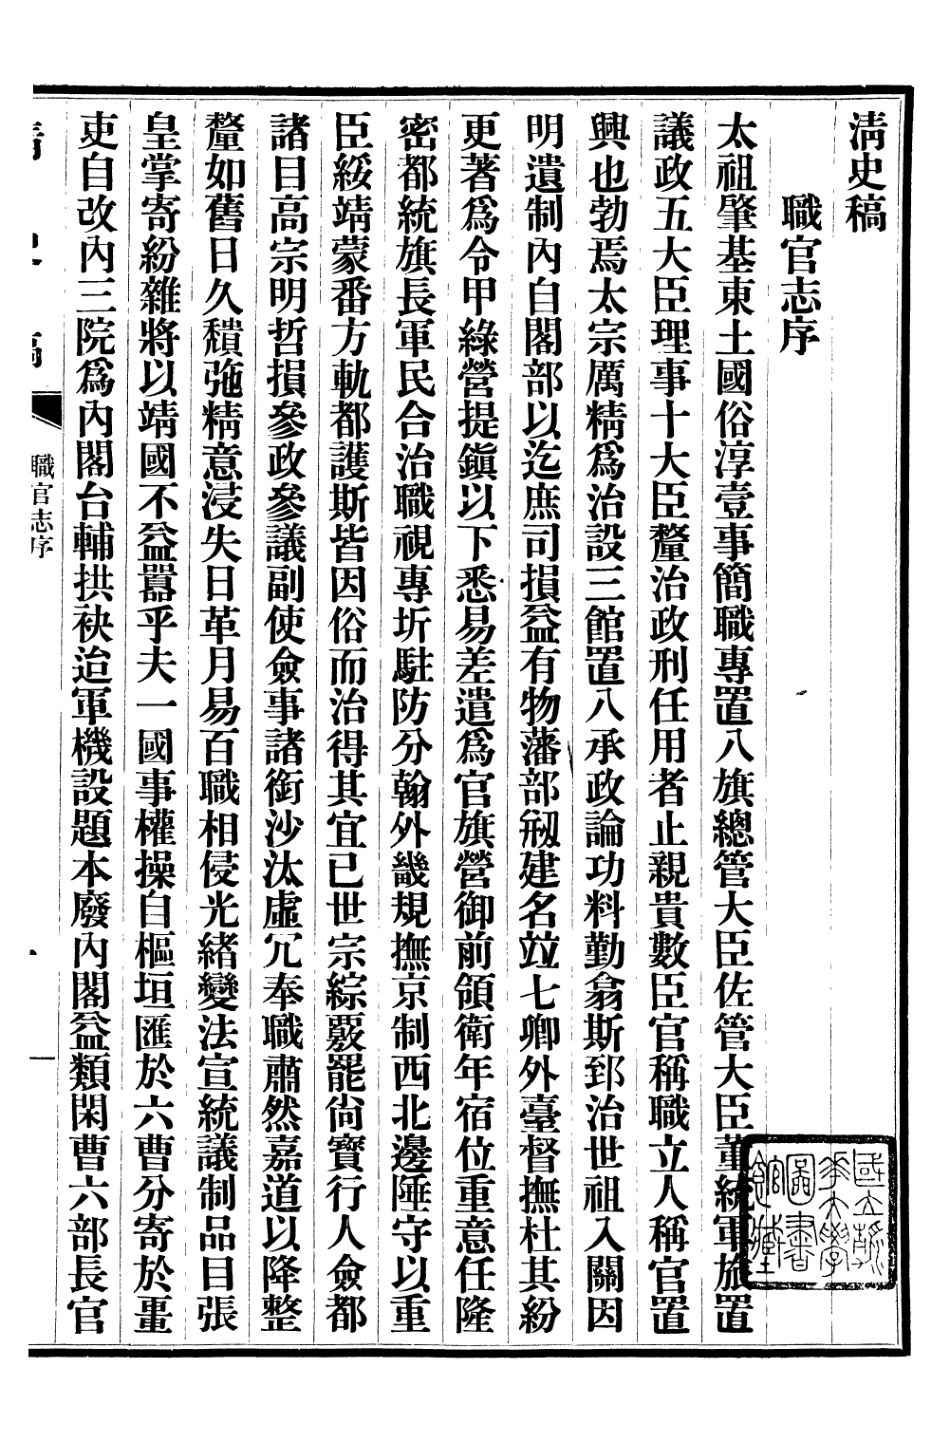 淸史稿
職官志序
太祖肇基東土國俗淳壹事簡職專置八旗總管大臣佐管大臣董統軍旅置
議政五大臣理事十大臣釐治政刑任用者止親貴數臣官稱職立人稱官置
興也勃焉太宗厲精爲治設三館置八承政論功料勤翕斯郅治世祖入關因
明遺制內自閣部以迄庶司損益有物藩部剏建名竝七卿外臺督撫杜其紛
更著爲令甲綠營提鎭以下悉易差遣爲官旗營御前領衛年宿位重意任隆
密都統旗長軍民合治職視專圻駐防分翰外畿規撫京制西北邊陲守以重
臣綏靖蒙番方軌都護斯皆因俗而治得其宜已世宗綜覈罷尙寶行人僉都
諸目高宗明哲損參政參議副使僉事諸銜沙汰虛冗奉職肅然嘉道以降整
釐如舊日久穨弛精意浸失日革月易百職相侵光緒變法宣統議制品目張
皇掌寄紛雜將以靖國不益囂乎夫一國事權操自樞垣匯於六曹分寄於畺
吏自改內三院爲內閣台輔拱袂迨軍機設題本廢內閣益類閑曹六部長官
清史稿
職官志序
一
國立清華大學圖書館藏